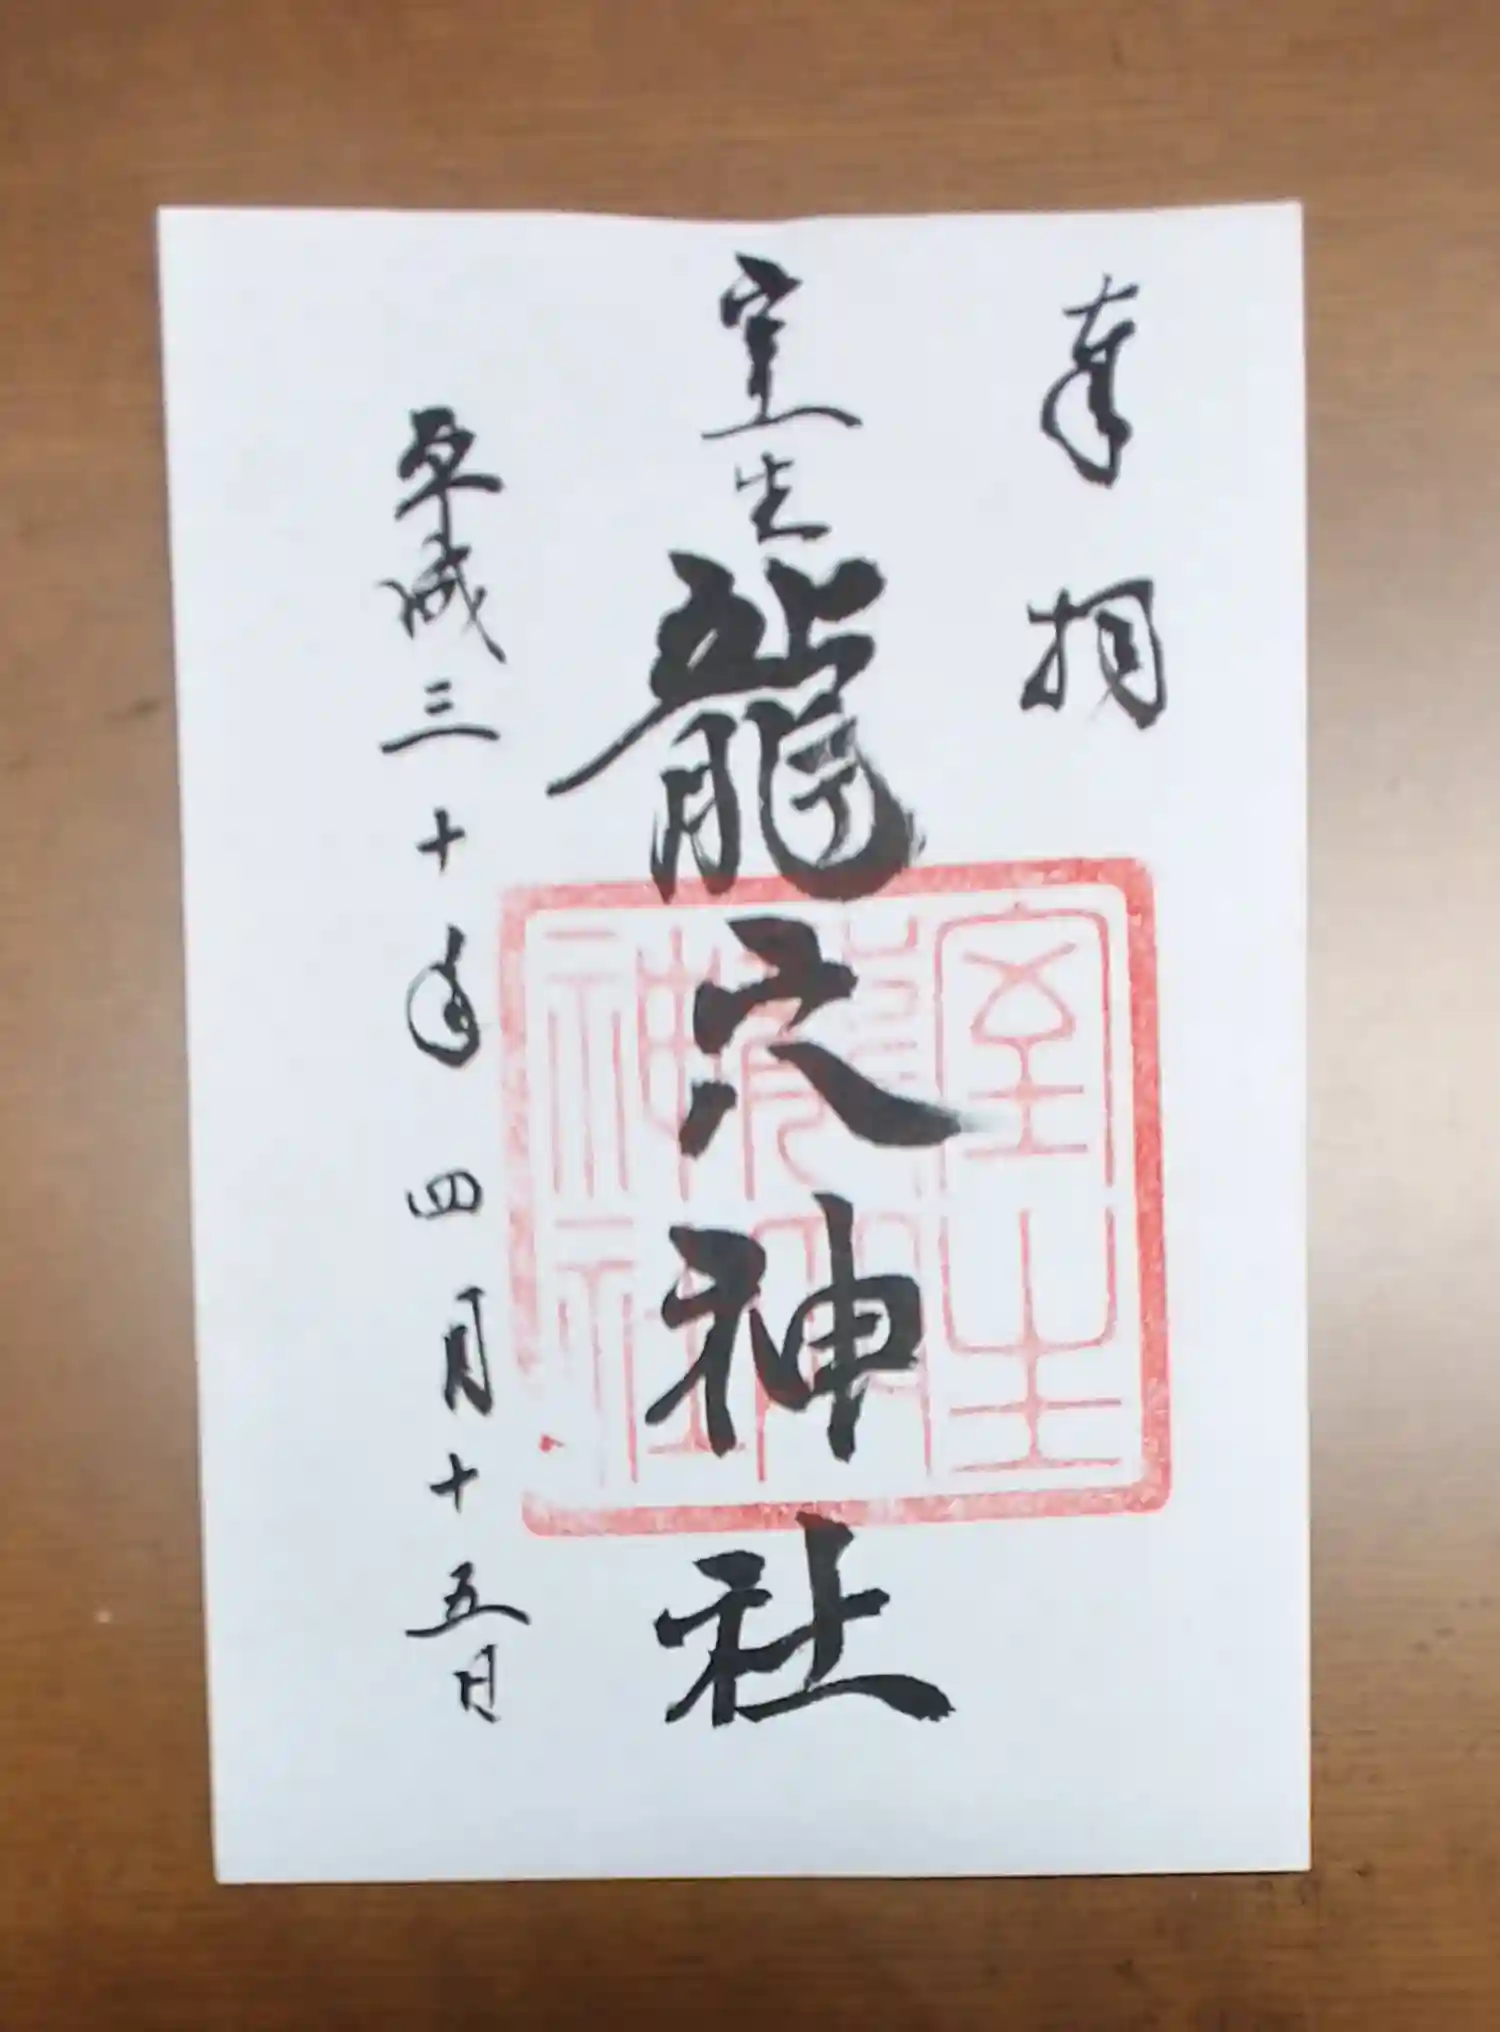 奉拝
室生龍穴神社
平成三十年四月十五日
室生
龍穴
神社